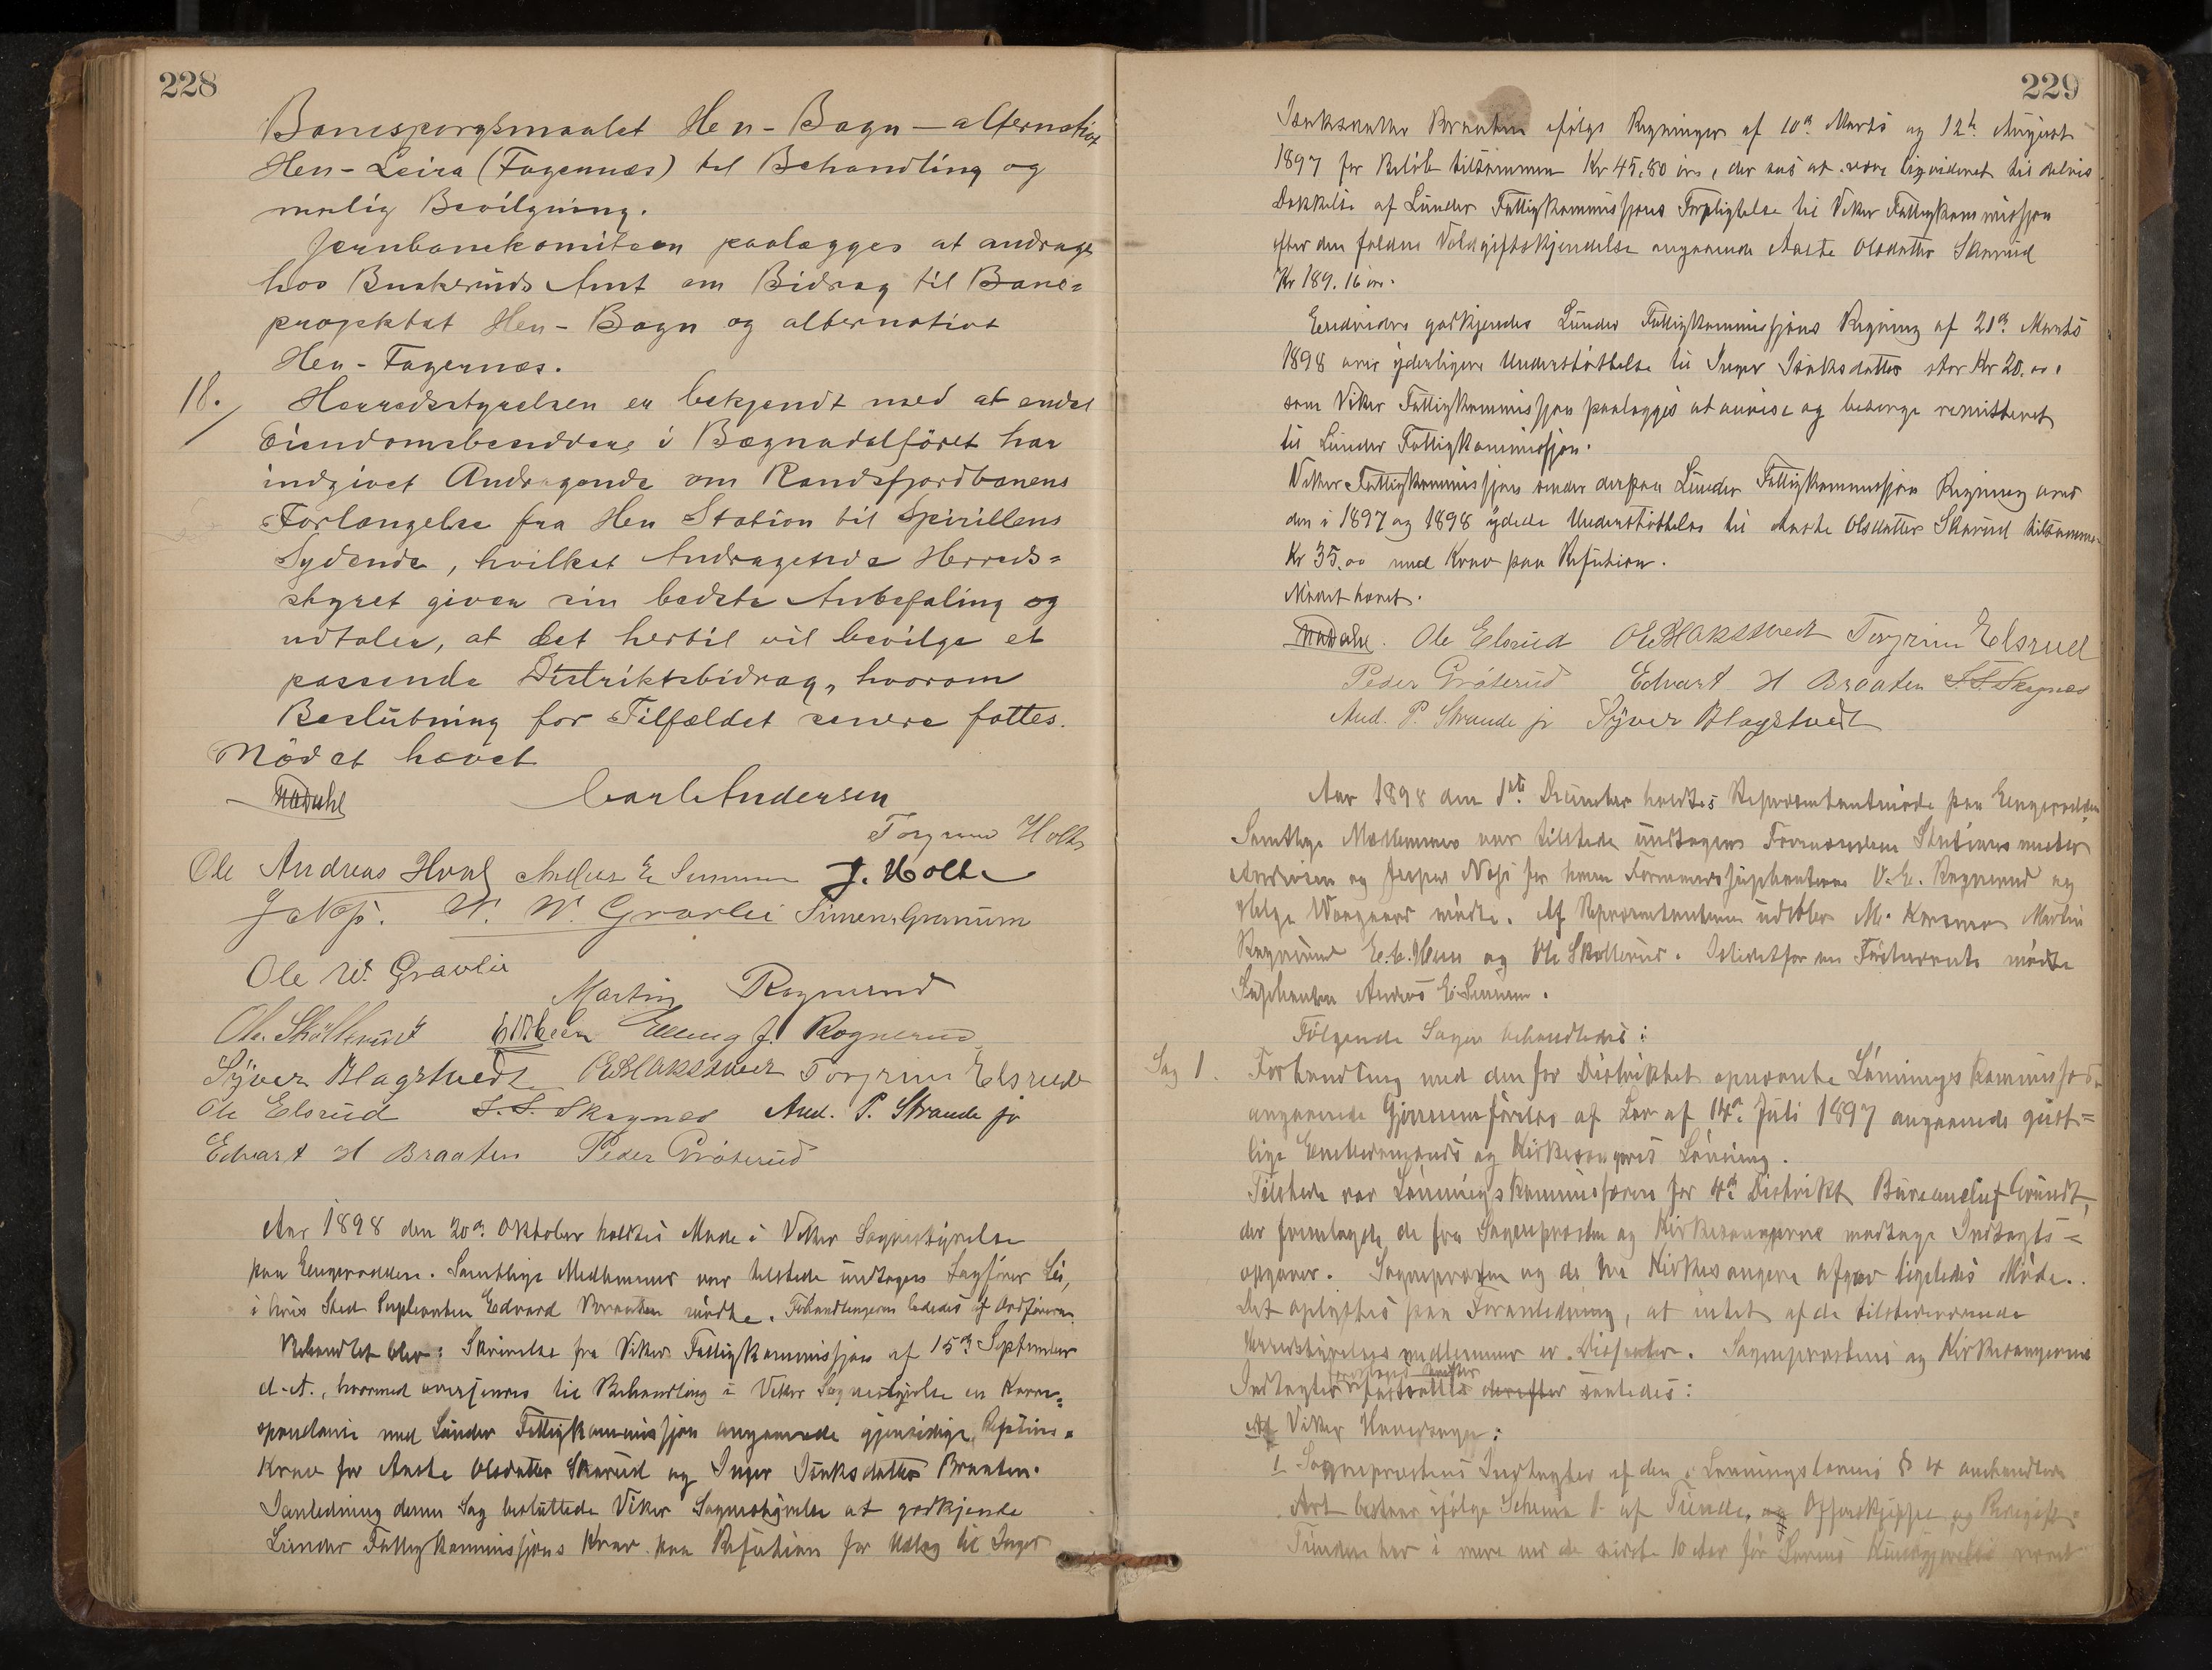 228
Banespørgsmaalet Hen - Bagn — alternativt
Hen - Leira (Fagernæs) til Behandling og
mulig Bevilgning.
Jernbanekomiteen paalægges at andrage
hos Buskeruds Amt om Bidrag til Bane=
projektet Hen - Bagn og alternativt
Hen - Fagernæs.
18. Herredsstyrelsen er bekjendt med at endel
Eiendomsbesiddere i Bægnadalføret har
indgivet Andragende om Randsfjordbanens
Forlængelse fra Hen Station til Spirillens
Sydende, hvilket Andragende Herreds=
styret giver sin bedste Anbefaling og
udtaler, at det hertil vil bevilge et
passende Distriktsbidrag, hvorom
Beslutning for Tilfældet senere fattes.
Mødet hævet
Carl Andersen
Torgrim Holte
Ole Andreas Hval J. Holte
W. W. Gravlei Simen Granum
Ole W. Gravlie
Martin Rognerud
Ole Skollerud Elling J. Rognerud
Syver Blagstvedt Torgrim Elsrud
Ole Elsrud S. S. Skagnæs And. P. Strande jr
Edvart H Braaten Peder Grøterud
Aar 1898 den 20de Oktober holdtes Møde i Viker Sognestyrelse
paa Engerodden. Samtlige Medlemmer var tilstede undtagen Lagfører Lie,
i hvis Sted Suplanten Edvard Braaten mødte. Forhandlingerne lededes af Ordføreren.
Behandlet blev: Skrivelse fra Viker Fattigkommissjon af 15de September
d. A., hvormed oversendes til Behandling i Viker Sognestyrelse en Korre=
spondance med Lunder Fattigkommissjon angaaende gjensidige Refutions=
krav for Anste Olsdatter Skarud og Inger Isaksdatter Braaten.
I anledning denne Sag besluttede Viker Sognestyrelse at godkjende
Lunder Fattigkommissjons Krav paa Refution for Udlæg til Inger
229
Isaksdatter Braaten ifølge Regninger af 10de Marts og 12te August
1897 for Beløb tilsammen Kr 45.80 øre, der sees at være ligvideret til delvis
Dækkelse af Lunder Fattigkommissjons Forpligtelse til Viker Fattigkommissjon
efter den faldne Voldgiftskjendelse angaaende Anste Olsdatter Skarud
Kr 189.16 øre.
Endvidere godkjendes Lunder Fattigkommissjons Regning af 21de Marts
1898 over yderligere Understøttelse til Inger Isaksdatter stor Kr 20.00,
som Viker Fattigkommissjon paalægges at anvise og besørge remitteret
til Lunder Fattigkommissjon.
Viker Fattigkommissjon sender derpaa Lunder Fattigkommissjon Regning over
den i 1897 og 1898 ydede Understøttelse til Anste Olsdatter Skarud tilsammen
Kr 35.00 med Krav paa Refution.
Mødet hævet.
Ole Elsrud Torgrim Elsrud
Peder Grøterud Edvart H Braaten S. S. Skagnæs
And. P. Strande jr Syver Blagstvedt
Aar 1898 den 1ste December holdtes Repræsentantmøde paa Engerodden
Samtlige Medlemmer var tilstede undtagen Formændene Stationsmester
Andersen og Jesper Næss for hvem Formandssuplanterne O. E. Rognerud og
Helge Vaagaard mødte. Af Repræsentanterne udebler M. Martin
Rognerud og Ole Skollerud. Istedetfor mødte
Suplanten Anders E. Semmen.
Følgende Sager behandledes:
Sag 1. Forhandling med den for Distriktet opnævnte Lønningskommissær
angaaende Gjennemførelse af Lov af 14de Juli 1897 angaaende geist=
lige Embedsmænds og Kirkesangeres Lønning.
Tilstede var Lønningskommissæren for 4de Distrikt Bureauchef Grundt,
der fremlagde de fra Sognepræsten og Kirkesangerne modtagne Indtægts=
opgaver. Sognepræsten og de tre Kirkesangere afgav ligeledes Møde.
Det oplystes paa Foranledning, at intet af de tilstedeværende
Herredsstyrelses medlemmer er Dissenter. Sognepræstens og Kirkesangernes
Indtægter fastsattes derefter saaledes:
Ad Viker Hovedsogn:
1 Sognepræstens Indtægter af den i Lønningslovens § 4 omhandlede
Art bestaar ifølge Schema 1. af Tiende, og Offerskjeppe og
Tienden har i mere end de sidste 10 Aar før Lovens Kundgjørelse været